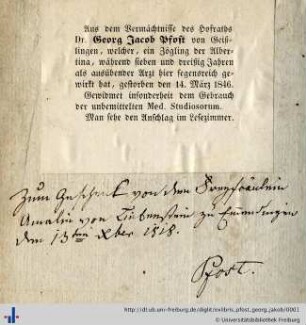 Aus dem Vermächtnisse des Hofraths
Dr. Georg Jacob Pfost von Geiß-
lingen, welcher, ein Zögling der Alber-
tina, während sieben und dreißig Jahren
als ausübender Arzt hier segensreich ge-
wirkt hat, gestorben den 14. März 1846.
Gewidmet insonderheit dem Gebrauch
der unbemittelten Med. Studiosorum.
Man sehe den Anschlag im Lesezimmer.
Zum Geschenk von dem
Amalia von zu Emendingen
den 13ten 8ber 1818.
Pfost.
http://dl.ub.uni-freiburg.de/diglit/exlibris_pfost_georg_jakob/0001
© Universitätsbibliothek Freiburg